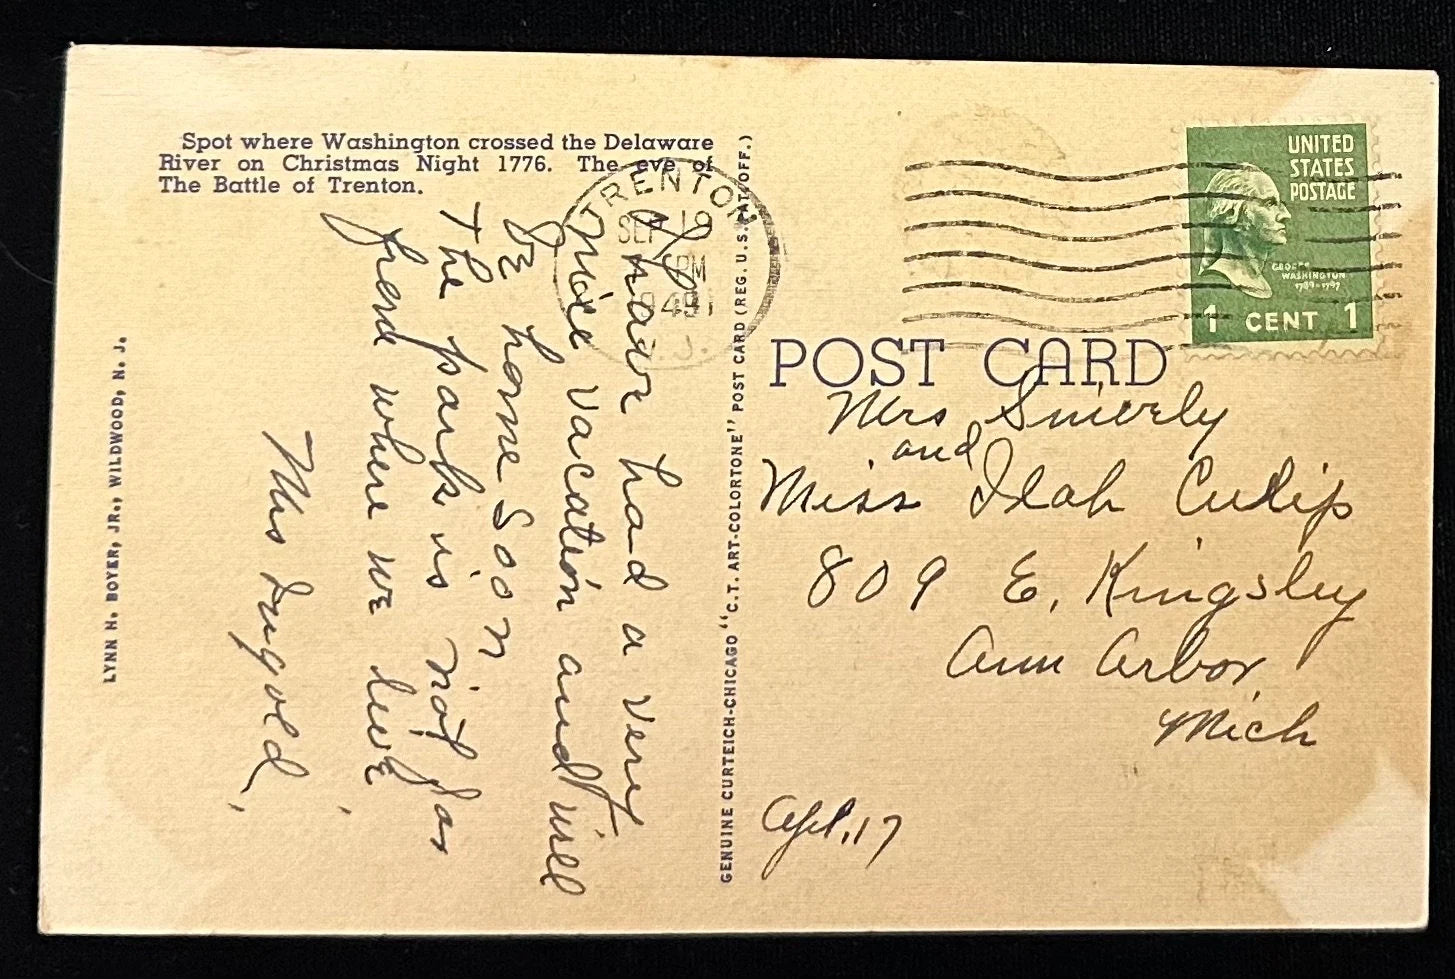 Spot where Washington crossed the Delaware
River on Christmas Night 1776. The eve of
The Battle of Trenton.
I have had a very
Nice Vacation and will
be home Soon
The park is not far
from where we live
Mrs Dugold.
LYNN H. BOYER, JR., WILDWOOD, N. J.
GENUINE CURTEICH-CHICAGO "C.T. ART-COLORTONE" POST CARD (REG. U.S. PAT. OFF.)
TRENTON
SEP 19
PM
1949
N.J.
UNITED
STATES
POSTAGE
GEORGE
WASHINGTON
1789-1797
1 CENT 1
POST CARD
Mrs Smierly
and
Miss Ilah Culip
809 E. Kingsley
Ann Arbor
Mich
Apt. 17